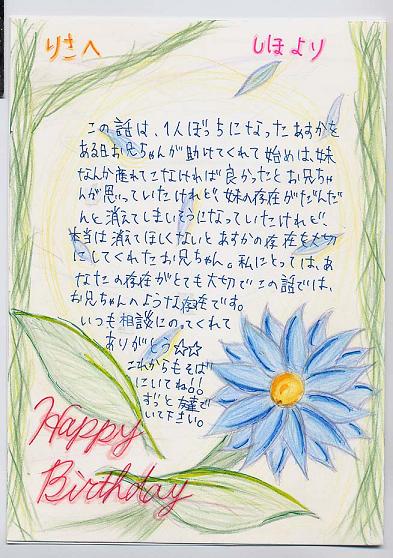 りさへ
しほより
この話は、1人ぼっちになったあすかを
ある日お兄ちゃんが助けてくれて始めは、妹
なんか産れてこなければ良かったとお兄ちゃ
んが思っていたけれど、妹の存在がだんだ
んと消えてしまいそうになっていたけれど、
本当は消えてほしくないとあすかの存在を大切
にしてくれたお兄ちゃん。私にとっては、あ
なたの存在がとても大切でこの話では、
お兄ちゃんのような存在です。
いつも相談にのってくれて
ありがとう☆☆
これからもそば
にいてね!!
ずっと友達で
いて下さい。
Happy
Birthday